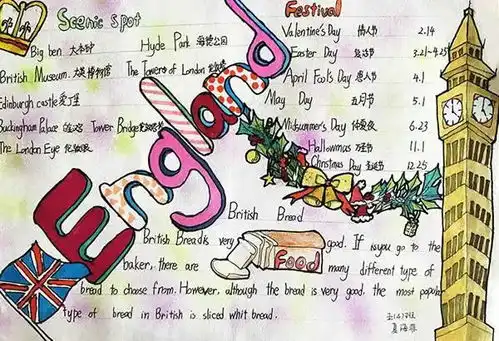 Scenic Spot
Big ben 大本钟 Hyde Park 海德公园
British Museum 大英博物馆 The Tower of London 伦敦塔
Edinburgh castle 爱丁堡
Buckingham Palace Tower Bridge
The London Eye 伦敦眼
England
Festival
Valentine's Day 情人节 2.14
Easter Day 复活节 3.21-4.25
April Fool's Day 愚人节 4.1
May Day 五月节 5.1
Midsummer's Day 仲夏夜 6.23
Hallowmas 万圣节 11.1
Christmas Day 圣诞节 12.25
British Bread
British Bread is very good. If is you go to the
baker, there are many different type of
Food
bread to choose from. However, although the bread is very good, the most popular
type of bread in British is sliced whit bread.